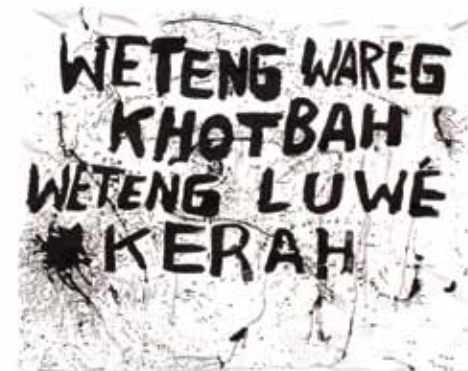 WETENG WAREG
KHOTBAH
WETENG LUWÉ
KERAH